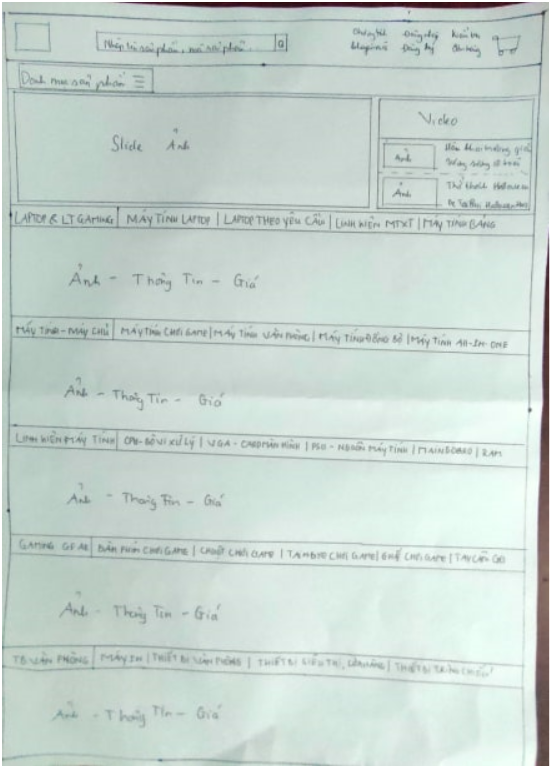 Nhập tên sản phẩm, mã sản phẩm...
Đăng nhập
Đăng ký
Kiểm tra
Danh mục sản phẩm
Slide Ảnh
Video
Ảnh
Ảnh
Thử thách Halloween
LAPTOP & LT GAMING | MÁY TÍNH LAPTOP | LAPTOP THEO YÊU CẦU | LINH KIỆN MTXT | MÁY TÍNH BẢNG
Ảnh - Thông Tin - Giá
MÁY TÍNH - MÁY CHỦ | MÁY TÍNH CHƠI GAME | MÁY TÍNH VĂN PHÒNG | MÁY TÍNH ĐỒNG BỘ | MÁY TÍNH All-IN-ONE
Ảnh - Thông Tin - Giá
LINH KIỆN MÁY TÍNH | CPU - BỘ VI XỬ LÝ | VGA - CARD MÀN HÌNH | PSU - NGUỒN MÁY TÍNH | MAINBOARD | RAM
Ảnh - Thông Tin - Giá
GAMING GEAR | BÀN PHÍM CHƠI GAME | CHUỘT CHƠI GAME | TAI NGHE CHƠI GAME | GHẾ CHƠI GAME | TAY CẦM
Ảnh - Thông Tin - Giá
TB VĂN PHÒNG | MÁY IN | THIẾT BỊ VĂN PHÒNG | THIẾT BỊ SIÊU THỊ, CỬA HÀNG | THIẾT BỊ TRÌNH CHIẾU
Ảnh - Thông Tin - Giá